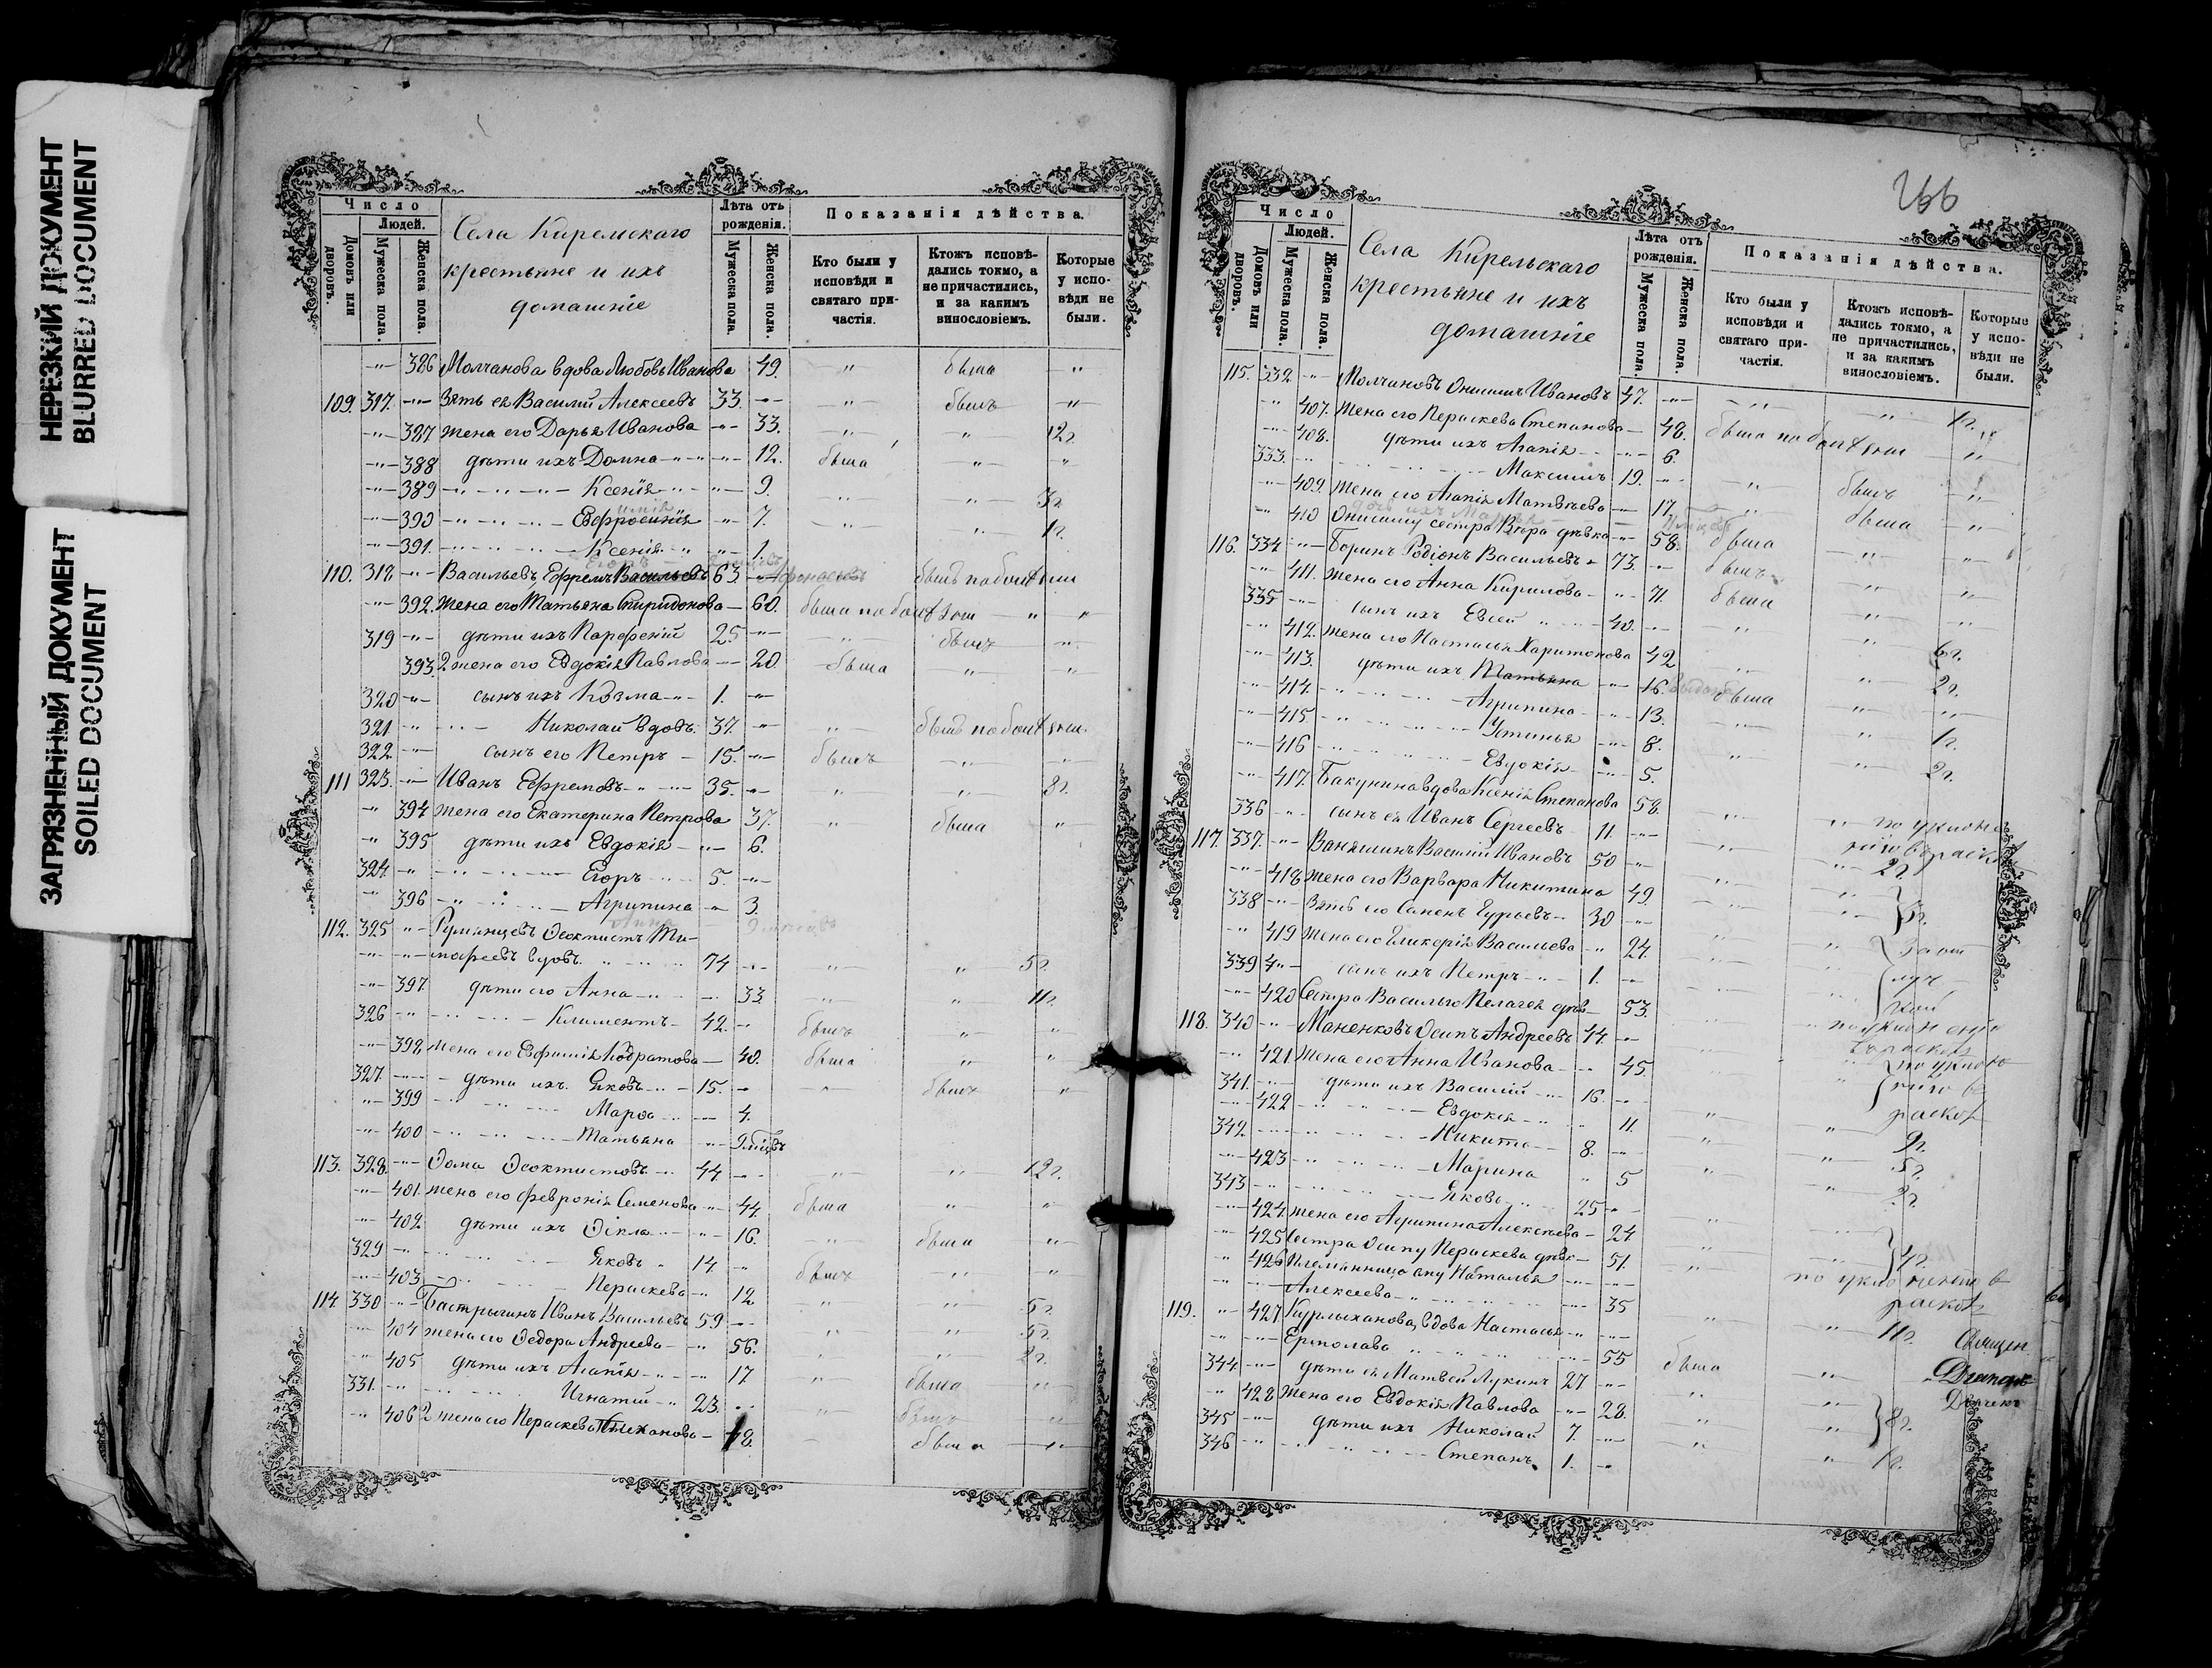 НЕРЕЗКИЙ ДОКУМЕНТ
BLURRED DOCUMENT
ЗАГРЯЗНЕННЫЙ ДОКУМЕНТ
SOILED DOCUMENT
Число
Людей.
Домовъ или дворовъ.
Мужеска пола.
Женска пола.
Села Кирельскаго
крестьяне и ихъ
домашніе
Лѣта отъ рожденія.
Мужеска пола.
Женска пола.
Показанія дѣйства.
Кто были у исповѣди и святаго причастія.
Ктожъ исповѣдались токмо, а не причастились, и за какимъ винословіемъ.
Которые у исповѣди не были.
386 Молчанова вдова Любовь Иванова 49. была
109. 317. Зять ея Василій Алексѣевъ 33. былъ
387 жена его Дарья Иванова 33. 12 г.
388 дѣти ихъ Домна 12. была
389 Ксенія 9. 3 г.
390 Евфросинія 7. 1 г.
391. Ксенія 1.
110. 318 Васильевъ Ефремъ Васильевъ 63 былъ по болѣзни
392. жена его Татьяна Спиридонова 60. была по болѣзни
319 дѣти ихъ Парфеній 25 былъ
393. 2 жена его Евдокія Павлова 20 была
320 сынъ ихъ Козма 1.
321 Николай вдовъ. 37. былъ по болѣзни
322 сынъ его Петръ 15. былъ
111 323. Иванъ Ефремовъ 35. 8 г.
394 жена его Екатерина Петрова 37. была
395 дѣти ихъ Евдокія 6.
324. Егоръ 5.
396 Агрипина 3.
112. 325 Румянцевъ Ѳеоктистъ Ти-
мофеевъ вдовъ. 74 5 г.
397 дѣти его Анна 33 11 г.
326 Климентъ 42. былъ
398 жена его Евфимія Кодратова 40. была
327. дѣти ихъ Яковъ 15. былъ
399 Марѳа 4.
400 Татьяна 9 мѣсцвъ
113. 328. Ѳома Ѳеоктистовъ 44. 12 г.
401 жена его Февронія Семенова 44. была
402 дѣти ихъ Ѳекла 16. была
329 Яковъ 14. былъ
403 Параскева 12
114. 330 Бастрыгинъ Иванъ Васильевъ 59 5 г.
404 жена его Ѳедора Андреева 56. 5 г.
405 дѣти ихъ Агапія 17 была
331. Игнатій 23. былъ
406 2 жена его Параскева 18. была
266
Число
Людей.
Домовъ или дворовъ.
Мужеска пола.
Женска пола.
Села Кирельскаго
крестьяне и ихъ
домашніе
Лѣта отъ рожденія.
Мужеска пола.
Женска пола.
Показанія дѣйства.
Кто были у исповѣди и святаго причастія.
Ктожъ исповѣдались токмо, а не причастились, и за какимъ винословіемъ.
Которые у исповѣди не были.
115. 332 Молчановъ Онисимъ Ивановъ 47. 1 г.
407. жена его Параскева Степанова 48. была по болѣзни
408. дѣти ихъ Агапія 6.
333. Максимъ 19. былъ
409. жена его Агапія Матвѣева 17. была
410 Онисиму сестра Вѣра дѣвка 58. была
116. 334 Боринъ Родіонъ Васильевъ 73. былъ
411. жена его Анна Кирилова 71. была
335 сынъ ихъ Евсей 40.
412. жена его Настасья Харитонова 42 6 г.
413. дѣти ихъ Татьяна 16. была 2 г.
414. Агрипина 13.
415 Устинья 8. 1 г.
416 Евдокія 5. 2 г.
417. Бакунина вдова Ксенія Степанова 58.
336 сынъ ея Иванъ Сергеевъ 11.
117. 337. Ванюшинъ Василій Ивановъ 50 2 г.
418 жена его Варвара Никитина 49.
338 зять его Гурьевъ 30
419 жена его Гликерія Васильева 24. за от
339 сынъ ихъ Петръ 1. луч
420 Сестра Василью Пелагея дѣв 53. кой
118. 340 Маненковъ Осипъ Андреевъ 44.
421 жена его Анна Иванова 45.
341. дѣти ихъ Василій 16.
422 Евдокія 11. раскол
342. Никита 8. 9 г.
423 Марина 5 5 г.
343 Яковъ 25 2 г.
424. жена его Агрипина Алексѣева 24.
425 Сестра Осипу Параскева дѣвк 51. 4 г.
426 Племянница ему Наталья
Алексѣева 35
119. 427 Курлыханова вдова Настасья 11 г.
Ермолаева 55 была
344 дѣти ея Матвей Лукинъ 27
428 жена его Евдокія Павлова 28. 8 г.
345 дѣти ихъ Николай 7.
346 Степанъ 1. 1 г.
Священ